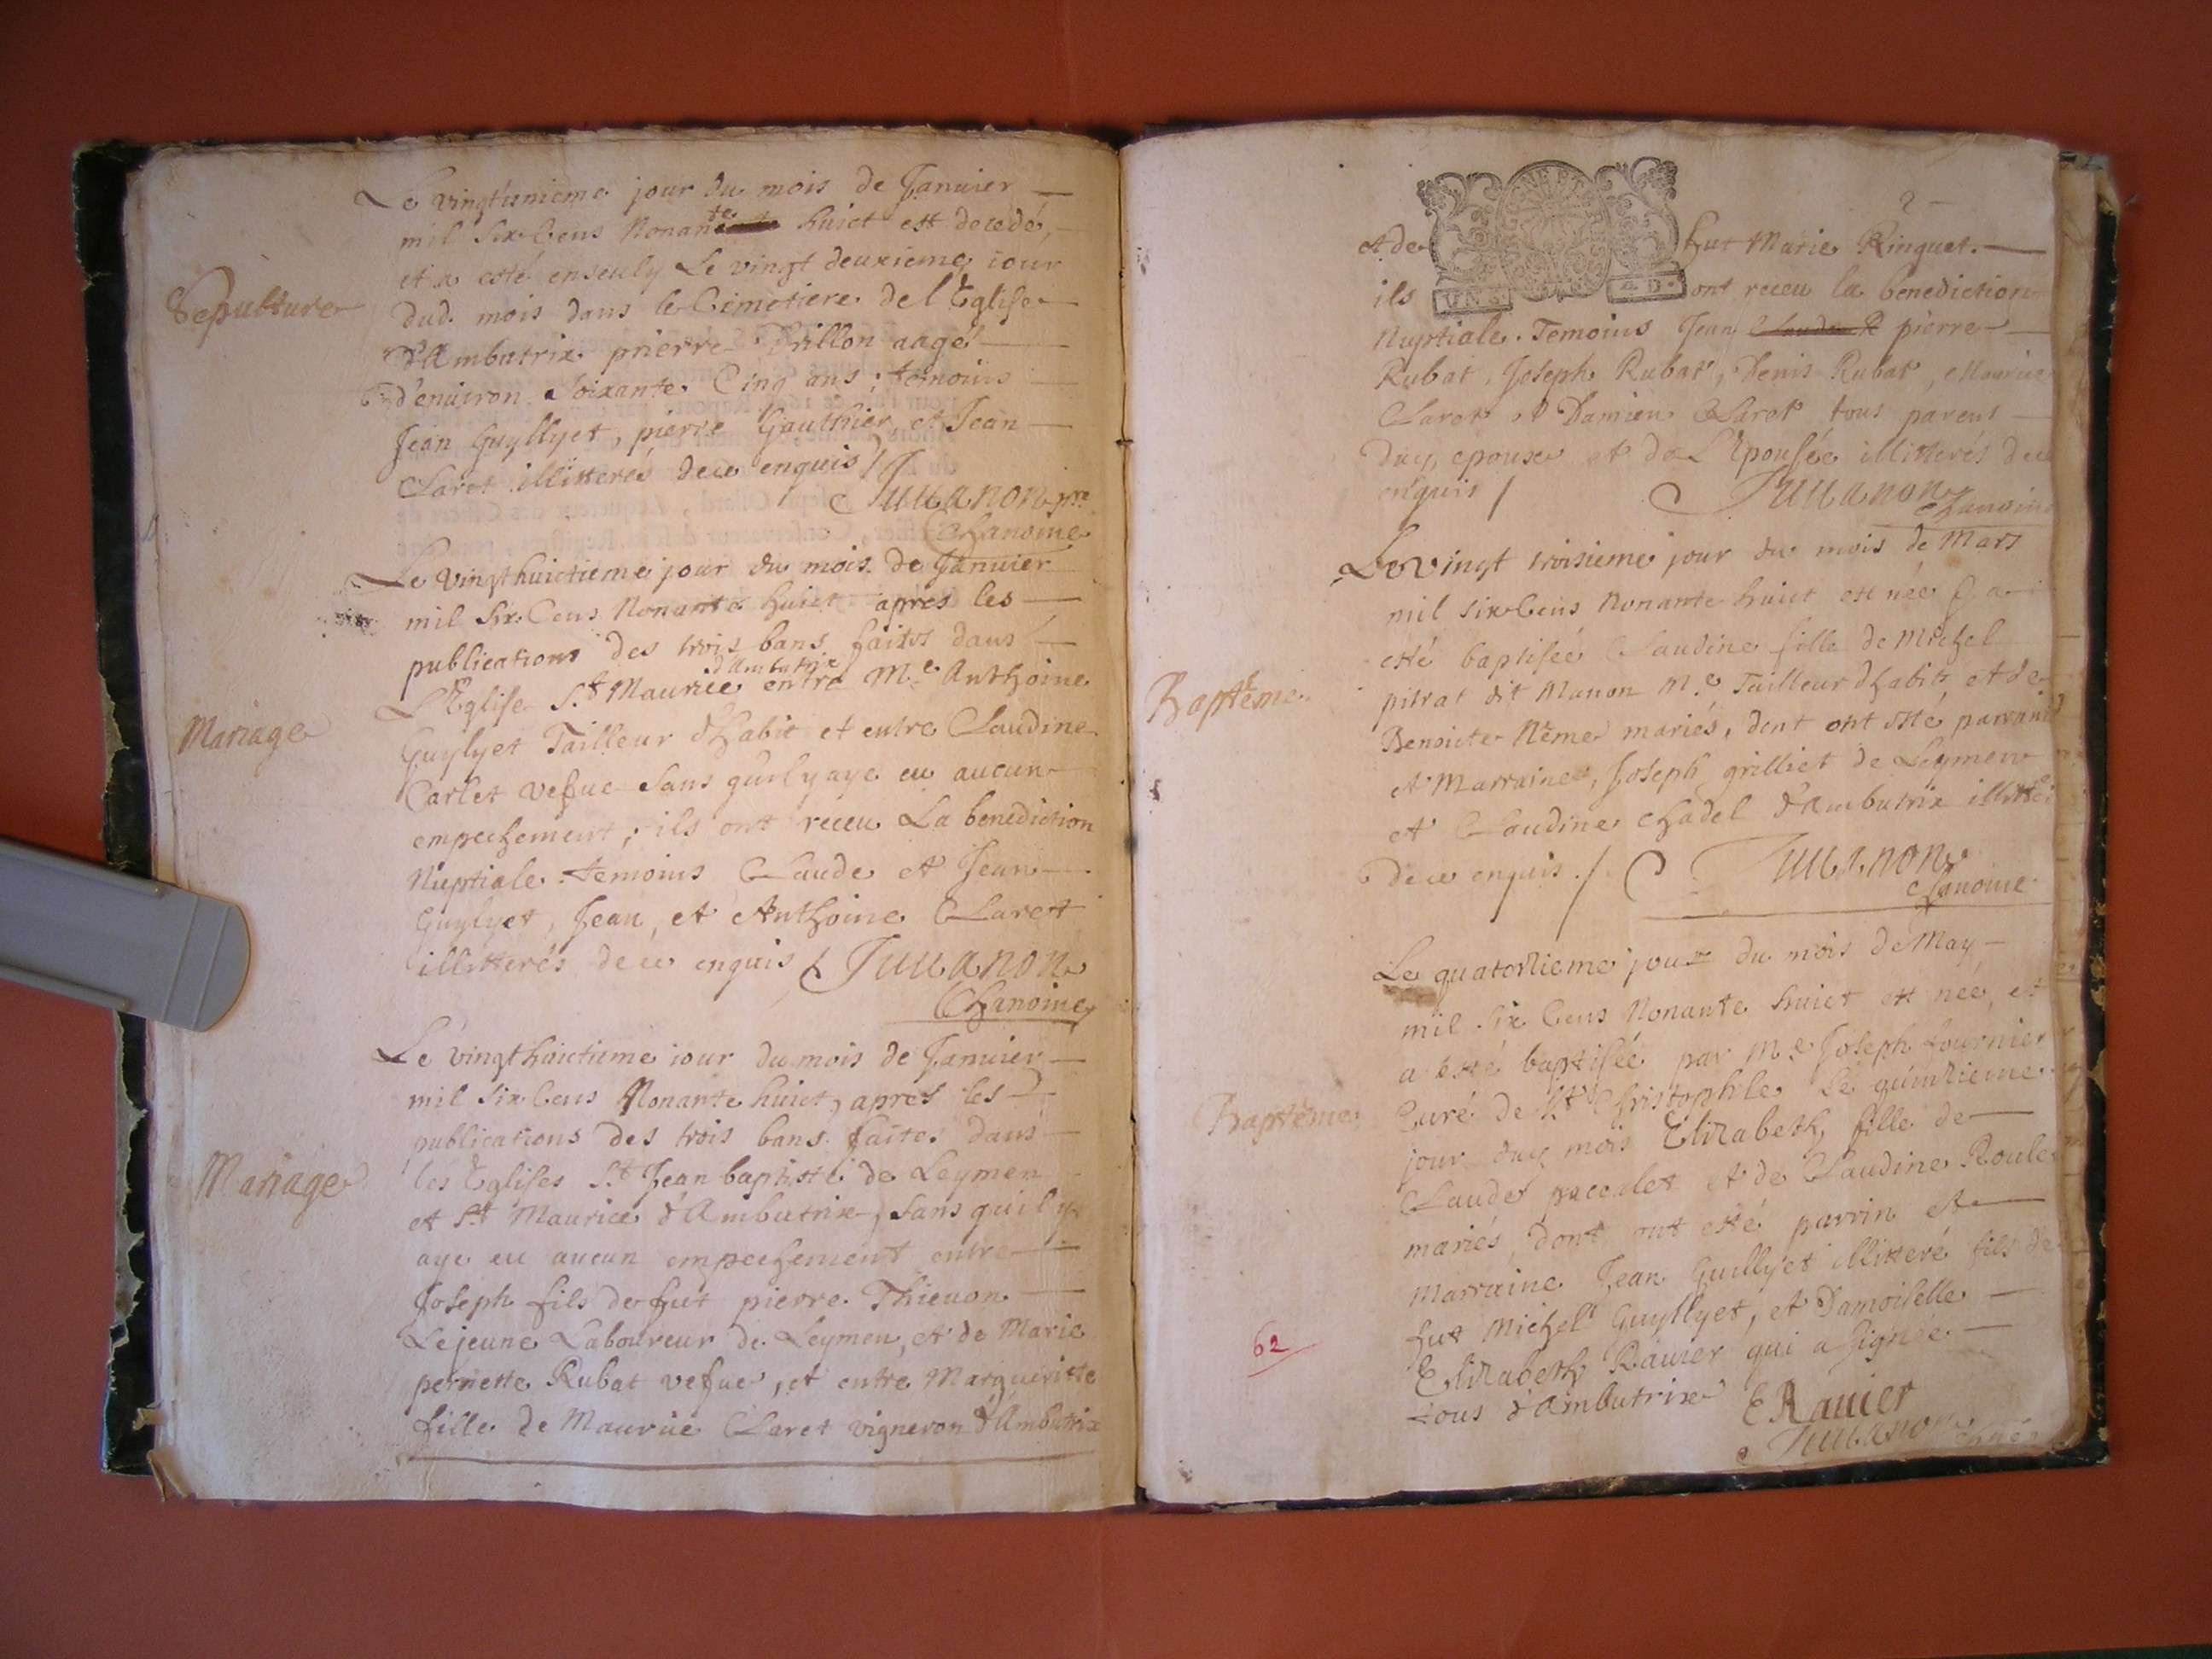 Le vingtunieme jour du mois de Januier
mil Six Cens Nonante huict est decedé,
et a esté enseuly Le vingt deuxieme iour
Sepulture
dud. mois dans le Cimetiere de l'Eglise
d'Ambutrix pierre Drillon aagé
d'enuiron Soixante Cinq ans; temoins
Jean Guyllyet, pierre Gauthier, et Jean
Claret illitterés de ce enquis /
Juuanon pre
Chanoine
Le Vingt huictieme jour du mois de Januier
mil Six Cens Nonante huict apres les
publications des trois bans faites dans
d'Ambutrix
L'Eglise St Maurice entre Me Anthoine
Mariage
Guylyet Tailleur d'habit et entre Claudine
Carlet vefue sans qu'il y aye eu aucun
empechement; ils ont receu La benediction
Nuptiale temoins Claude et Jean
Guylyet, Jean, et Anthoine Claret
illitterés de ce enquis / Juuanon
Chanoine
Le vingt huictieme iour du mois de Januier
mil six Cens Nonante huict, apres les
publications des trois bans faites dans
Mariage
les Eglises St Jean baptiste de Leymen
et St Maurice d'Ambutrix, sans qu'il y
aye eu aucun empechement entre
Joseph fils de fut pierre Thieuon
Le jeune Laboureur de Leymen, et de Marie
pernette Rubat vefue, et entre Margueritte
fille de Maurice Claret vigneron d'Ambutrix
2
et de fut Marie Ringuet.
UN S. 4 D.
ils ont receu la benediction
Nuptiale. Temoins Jean pierre
Rubat, Joseph Rubat, Denis Rubat, Maurice
Claret et Damien Claret tous parens
duy epoux et de L'Epousée illitterés de ce
enquis / Juuanon
Chanoine
Le vingt troisieme jour du mois de Mars
mil six Cens Nonante huict est née & a
esté baptisée Claudine fille de Michel
Baptême
pitrat dit Manon Me Tailleur d'habits, et de
Benoicte Nême mariés, dont ont esté parrain
et Marraine, Joseph grilliet de Leymen
et Claudine Chadel d'Ambutrix
de ce enquis. / Juuanon
Chanoine
Le quatorzieme jour du mois de May
mil Six Cens Nonante huict est née, et
a esté baptisée par Me Joseph fournier
Baptême
Curé de St Christophle Le quinzieme
jour duy mois Elizabeth, fille de
Claude et de Claudine Roule
mariés, dont ont esté parrin et
marraine Jean Guillyet illitteré fils de
fut Michel Guyllyet, et Damoiselle
62
Elizabeth Rauier qui a signée
tous d'Ambutrix E Rauier
Juuanon